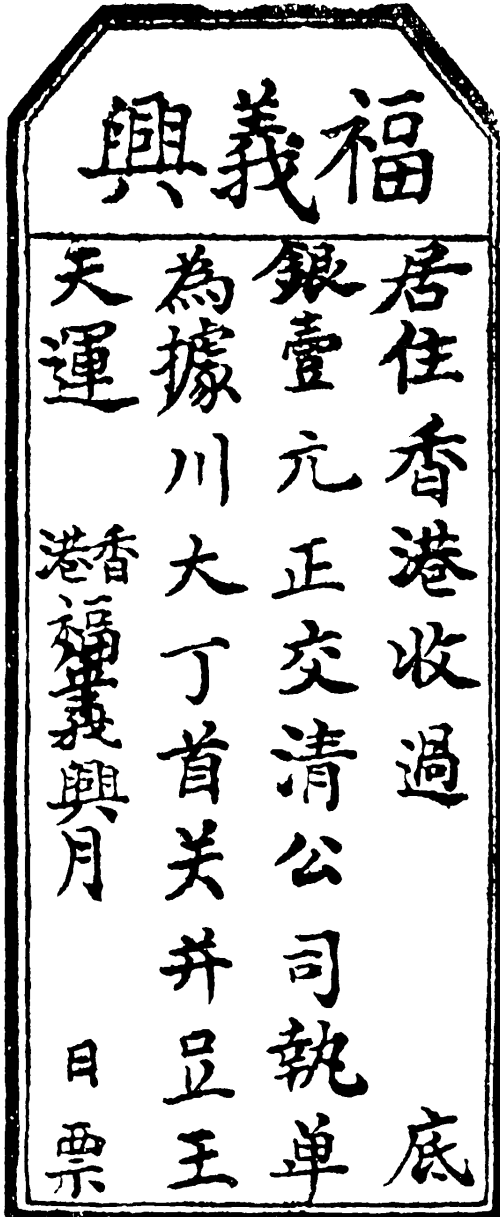 福義興
居住香港收過 底
銀壹亢正交清公司執单
為據川大丁首关并豆王
天運 香港福義興月 日票